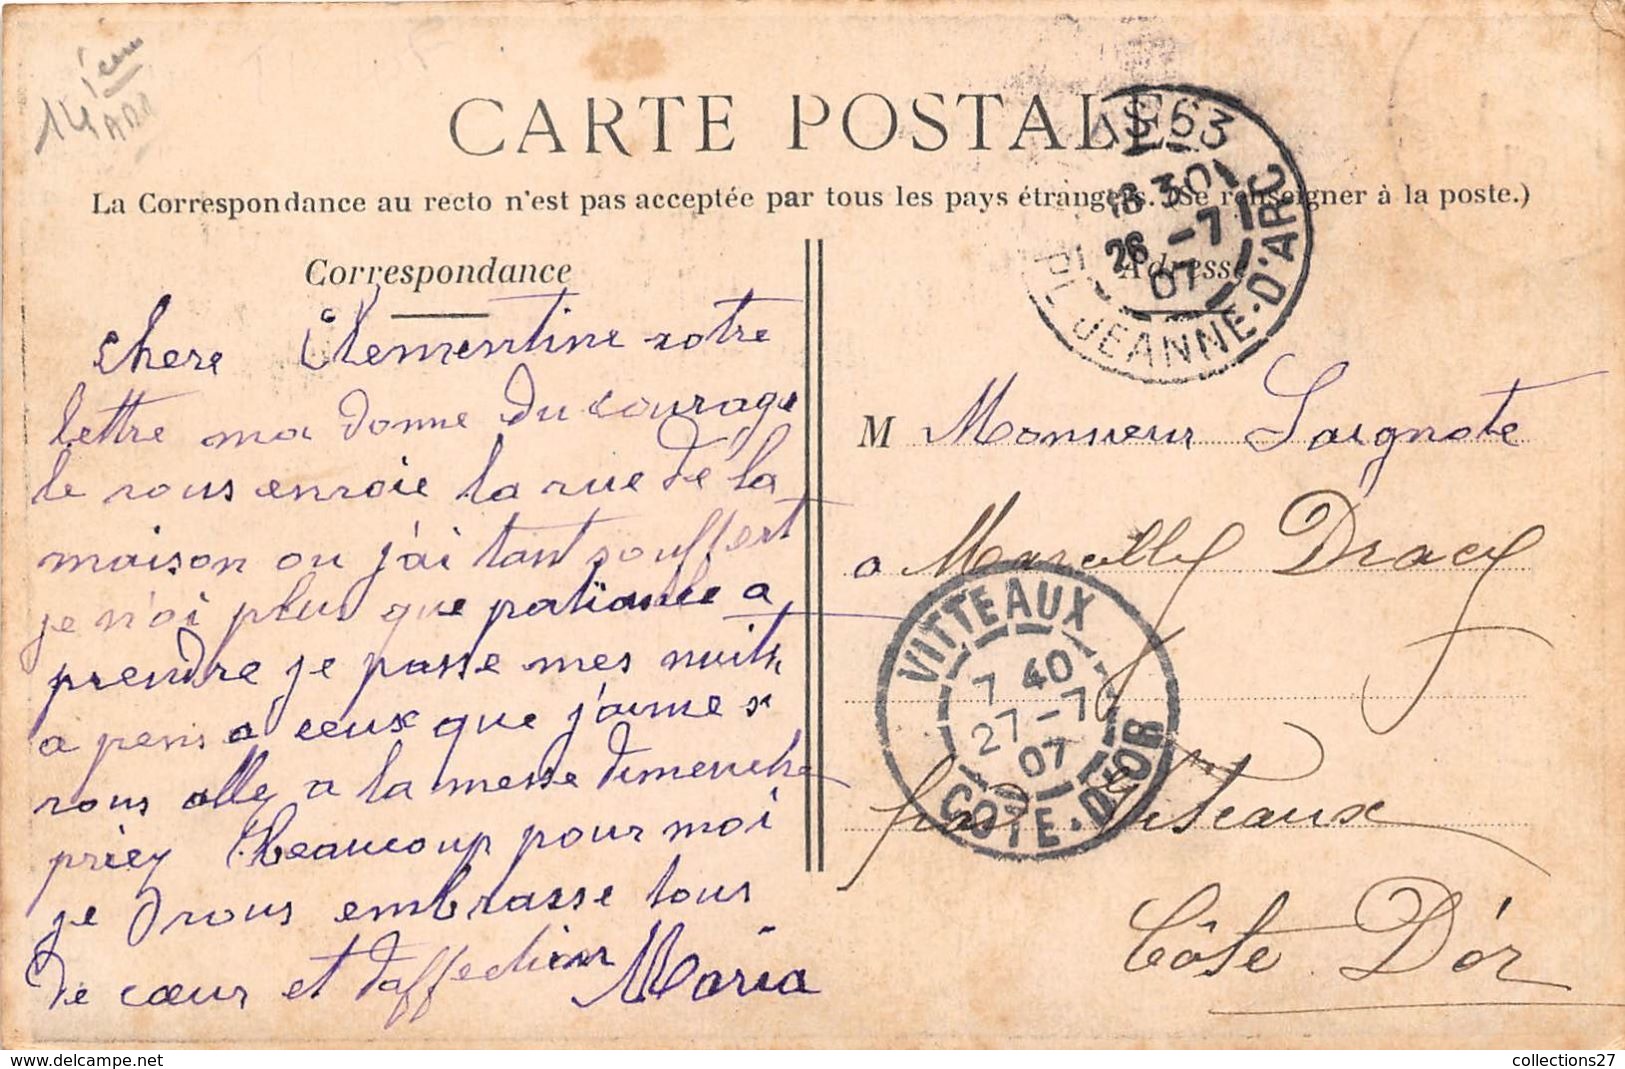 14ième
ARR
CARTE POSTALE
La Correspondance au recto n'est pas acceptée par tous les pays étrangers. (Se renseigner à la poste.)
Correspondance
chere Clementine votre
lettre ma donne du courage
le vous envoie la vue de la
maison ou j'ai tant souffert
je n'ai plus que patiance a
prendre je passe mes nuits
a pens a ceux que j'aime si
vous alley a la messe dimenche
priey beaucoup pour moi
je vous embrasse tous
de cœur et d'affection Maria
S 63
18 30
26 -7
07
PL JEANNE-D'ARC
Adresse
M Monsieur Saignote
a Marcelly Dracy
VITTEAUX
7 40
27-7
07
COTE-D'OR
par Viteaux
Côte D'ór
collections27
www.delcampe.net